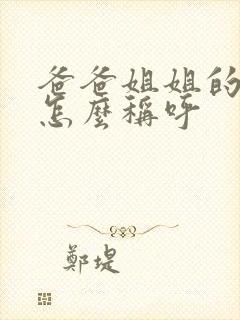 爸爸姐姐的
怎麼稱呼
鄭堤